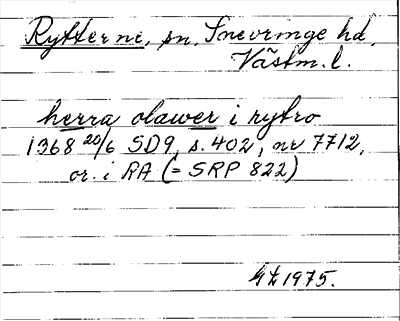 Rytterne, sn, Snevringe hd,
Västm. l.
herra olawer i rytro
1368 20/6 SD9, s. 402, nr 7712,
or. i RA (= SRP 822)
1975.